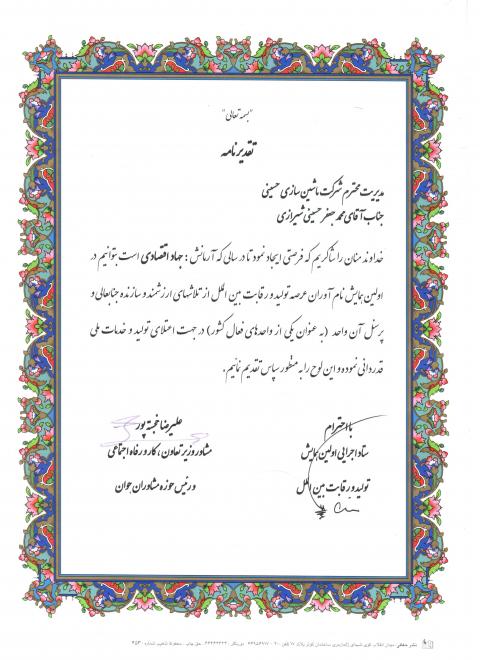 "بسمه تعالی"
تقدیرنامه
مدیریت محترم شرکت ماشین سازی حسینی
جناب آقای محمد جعفر حسینی شیرازی
خداوند منان را شاکریم که فرصتی ایجاد نمود تا در سالی که آرمانش : جهاد اقتصادی است بتوانیم در
اولین همایش نام آوران عرصه تولید و رقابت بین الملل از تلاشهای ارزشمند و سازنده جنابعالی و
پرسنل آن واحد (به عنوان یکی از واحدهای فعال کشور) در جهت اعتلای تولید و خدمات ملی
قدردانی نموده و این لوح را به منظور سپاس تقدیم نمائیم.
با احترام
ستاد اجرایی اولین همایش
تولید و رقابت بین الملل
علیرضا خجسته پور
مشاور وزیر تعاون، کار و رفاه اجتماعی
و رئیس حوزه مشاوران جوان